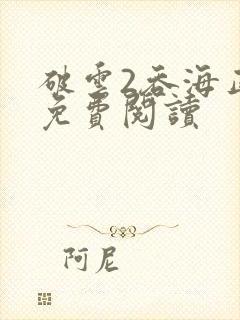 破雲2吞海
免費閱讀
阿尼